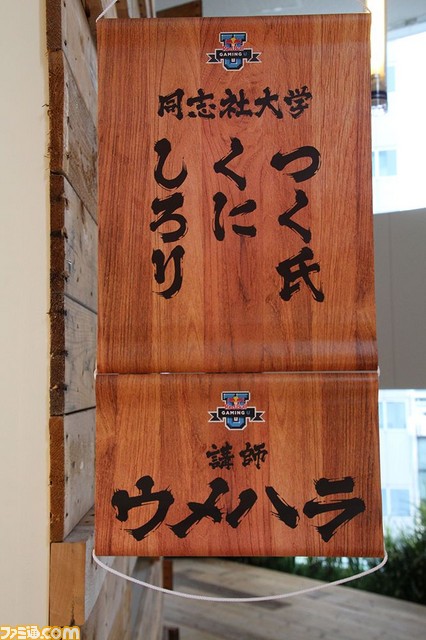 GAMING U
U
同志社大学
つく氏
くに
しろり
GAMING U
U
講師
ウメハラ
ファミ通.com